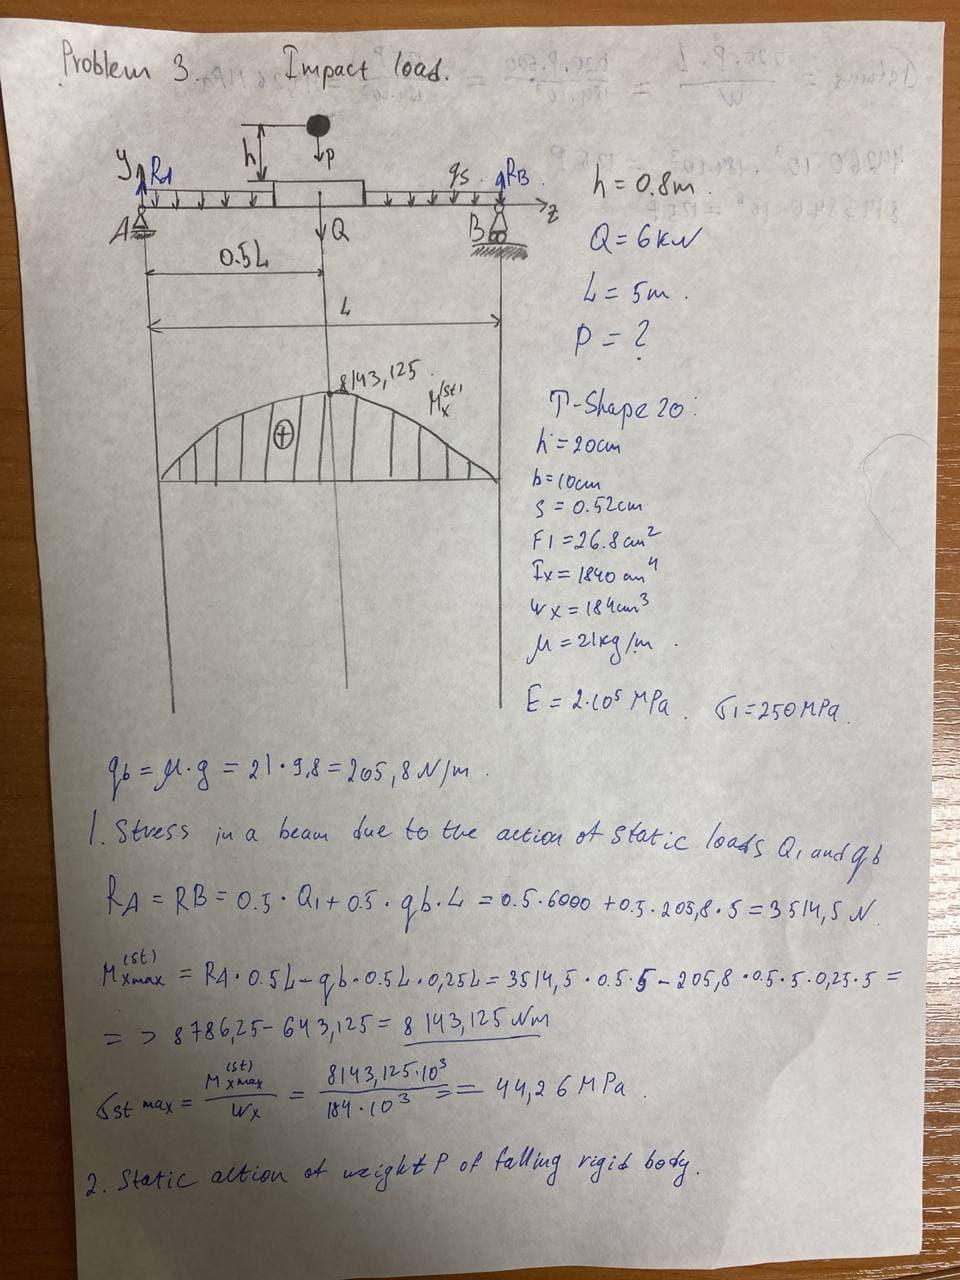 Problem 3. Impact load.
h
P
y RA
qs. RB.
A
B
z
Q
0.5L
L
8143,125
Mx(st)
+
h = 0.8m.
Q = 6kN
L = 5m.
P = ?
T-Shape 20:
h = 20cm
b = 10cm
s = 0.52cm
F1 = 26.8cm²
Ix = 1840cm⁴
Wx = 184cm³
μ = 21kg/m.
E = 2·10⁵ MPa. σ1 = 250MPa.
qb = μ·g = 21·9,8 = 205,8 N/m.
1. Stress in a beam due to the action of static loads Q1 and qb
RA = RB = 0.5·Q1 + 0.5·qb·L = 0.5·6000 + 0.5·205,8·5 = 3514,5 N.
Mxmax(st) = RA·0.5L - qb·0.5L·0,25L = 3514,5·0.5·5 - 205,8·0.5·5·0,25·5 =
= > 8786,25 - 643,125 = 8143,125 Nm
σst max = Mxmax(st) / Wx = 8143,125·10³ / 184·10³ == 44,26 MPa.
2. Static action of weight P of falling rigid body.